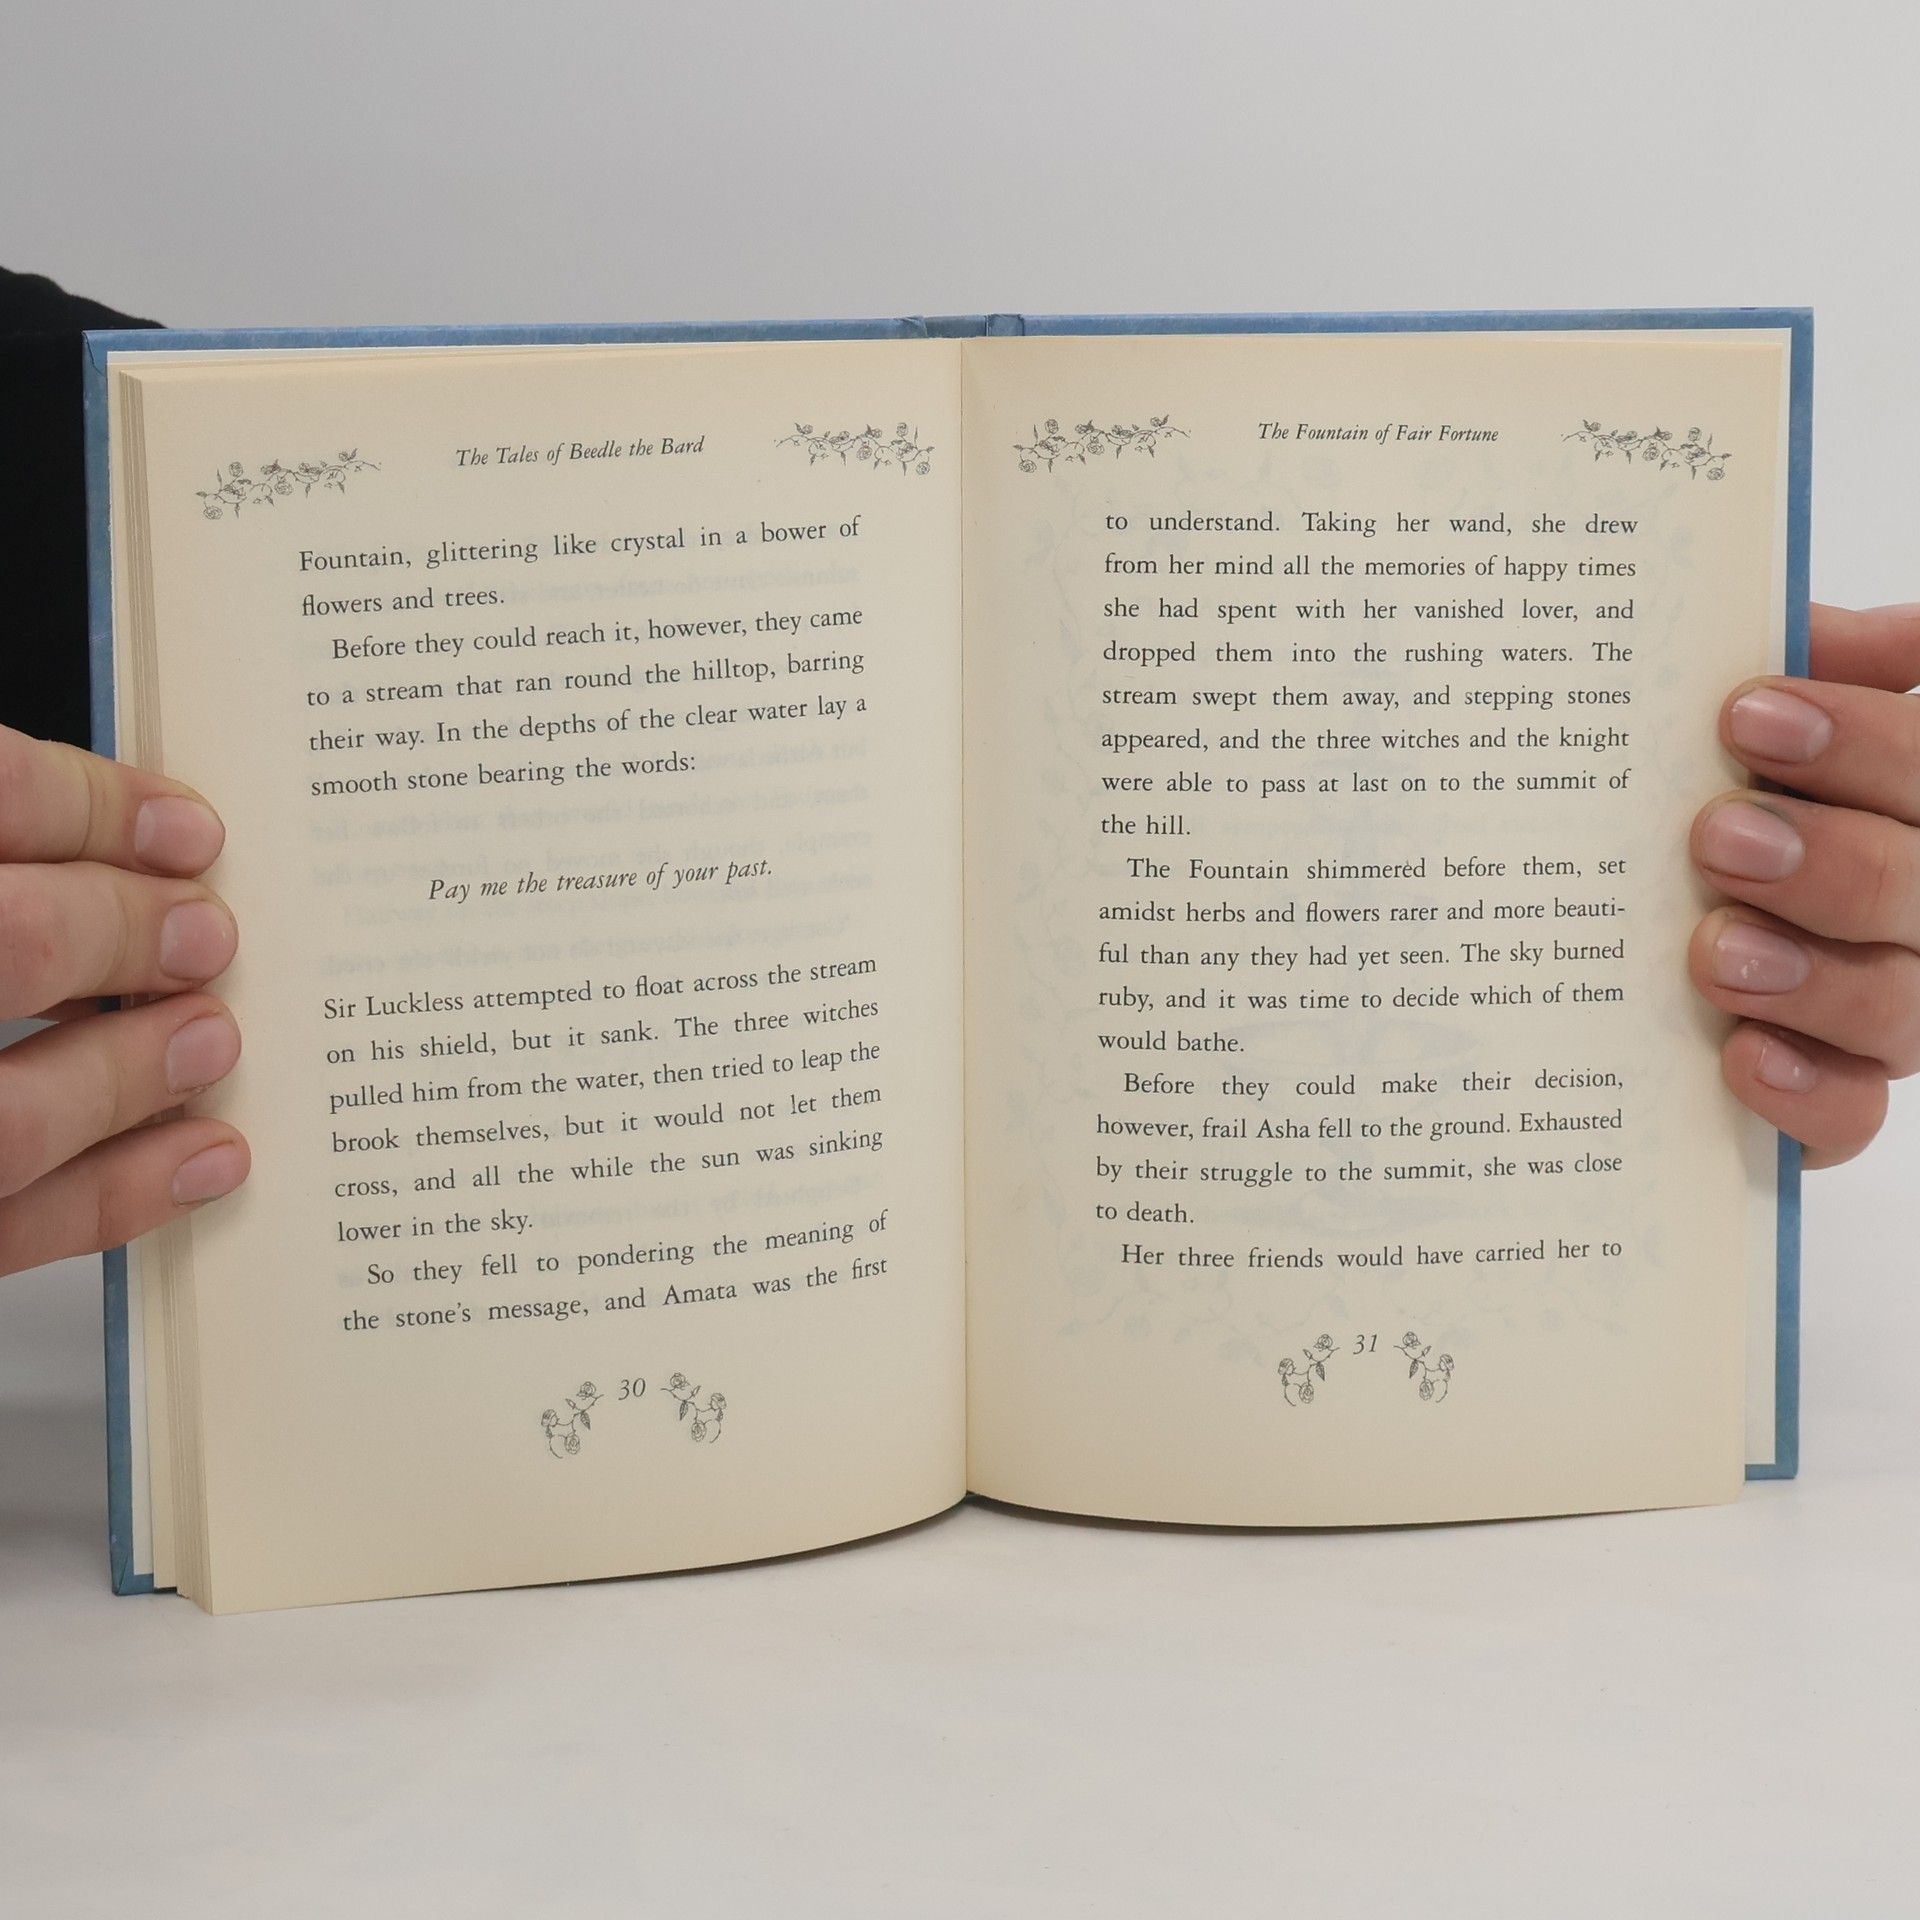 The Tales of Beedle the Bard
Fountain, glittering like crystal in a bower of
flowers and trees.
Before they could reach it, however, they came
to a stream that ran round the hilltop, barring
their way. In the depths of the clear water lay a
smooth stone bearing the words:
Pay me the treasure of your past.
Sir Luckless attempted to float across the stream
on his shield, but it sank. The three witches
pulled him from the water, then tried to leap the
brook themselves, but it would not let them
cross, and all the while the sun was sinking
lower in the sky.
So they fell to pondering the meaning of
the stone's message, and Amata was the first
30
The Fountain of Fair Fortune
to understand. Taking her wand, she drew
from her mind all the memories of happy times
she had spent with her vanished lover, and
dropped them into the rushing waters. The
stream swept them away, and stepping stones
appeared, and the three witches and the knight
were able to pass at last on to the summit of
the hill.
The Fountain shimmered before them, set
amidst herbs and flowers rarer and more beauti-
ful than any they had yet seen. The sky burned
ruby, and it was time to decide which of them
would bathe.
Before they could make their decision,
however, frail Asha fell to the ground. Exhausted
by their struggle to the summit, she was close
to death.
Her three friends would have carried her to
31